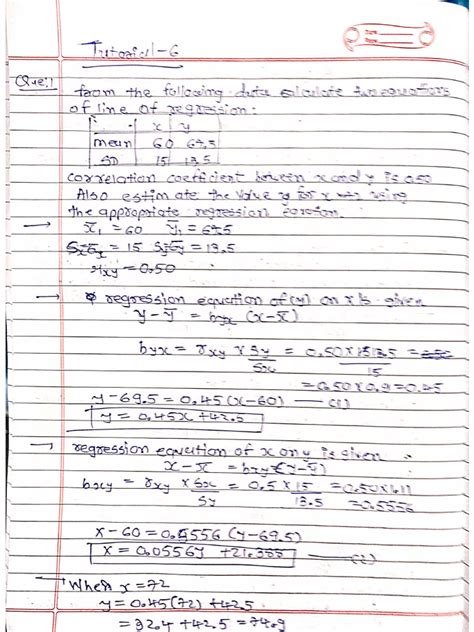 Tutorial-6
Que:1 from the following data calculate two equations
of line of regression:
x y
mean 60 67.5
SD 15 13.5
correlation coefficient between x and y is 0.50
Also estimate the value y for x using
the appropriate regression
→ x̄₁ = 60 ȳ₁ = 67.5
σx = 15 σy = 13.5
rxy = 0.50
→ regression equation of (y) on x is given
y - ȳ = byx (x - x̄)
byx = rxy × Sy/Sx = 0.50 × 13.5/15
= 0.50 × 0.9 = 0.45
y - 69.5 = 0.45 (x - 60) — (1)
y = 0.45x + 42.5
→ regression equation of x on y is given
x - x̄ = bxy (y - ȳ)
bxy = rxy × Sx/Sy = 0.5 × 15/13.5 = 0.50 × 1.11
= 0.5556
x - 60 = 0.5556 (y - 69.5)
x = 0.0556y + 21.385 — (2)
→ When x = 72
y = 0.45 (72) + 42.5
= 32.4 + 42.5 = 74.9